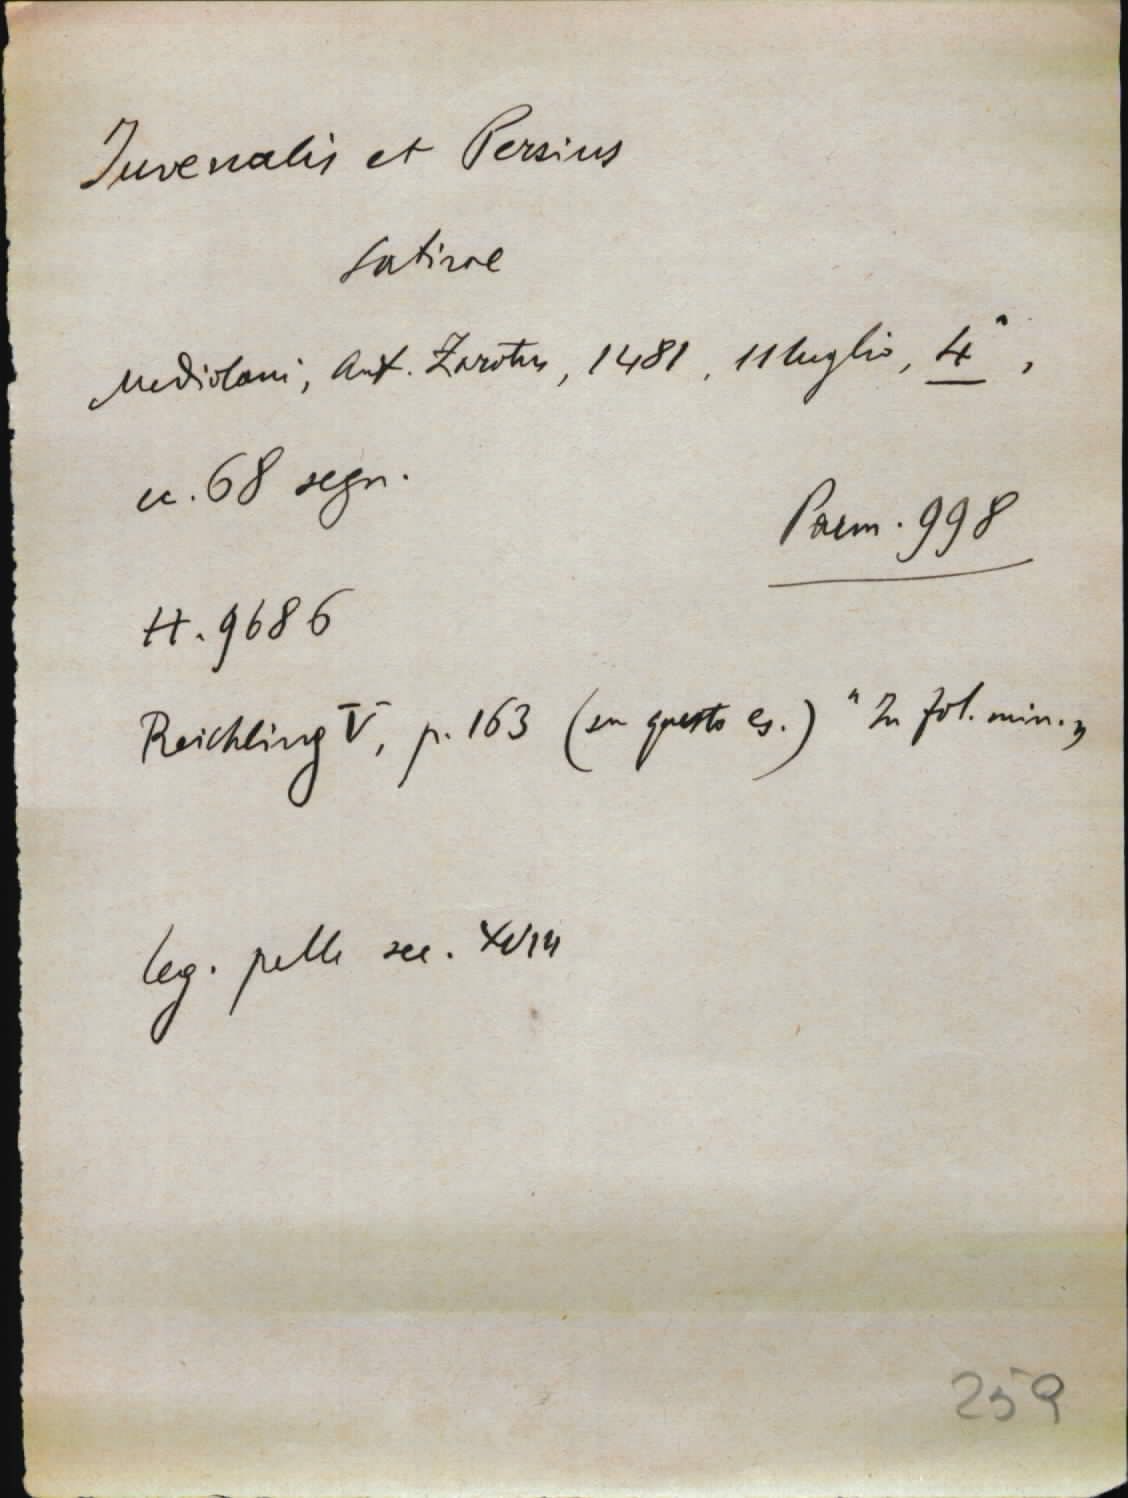 Iuvenalis et Persius
Satirae
Mediolani, Ant. Zarotus, 1481, 11 luglio, 4°,
cc. 68 segn.
Parm. 998
H. 9686
Reichling V, p. 163 (su questo es.) "In fol. min."
leg. pelle sec. XVIII
259